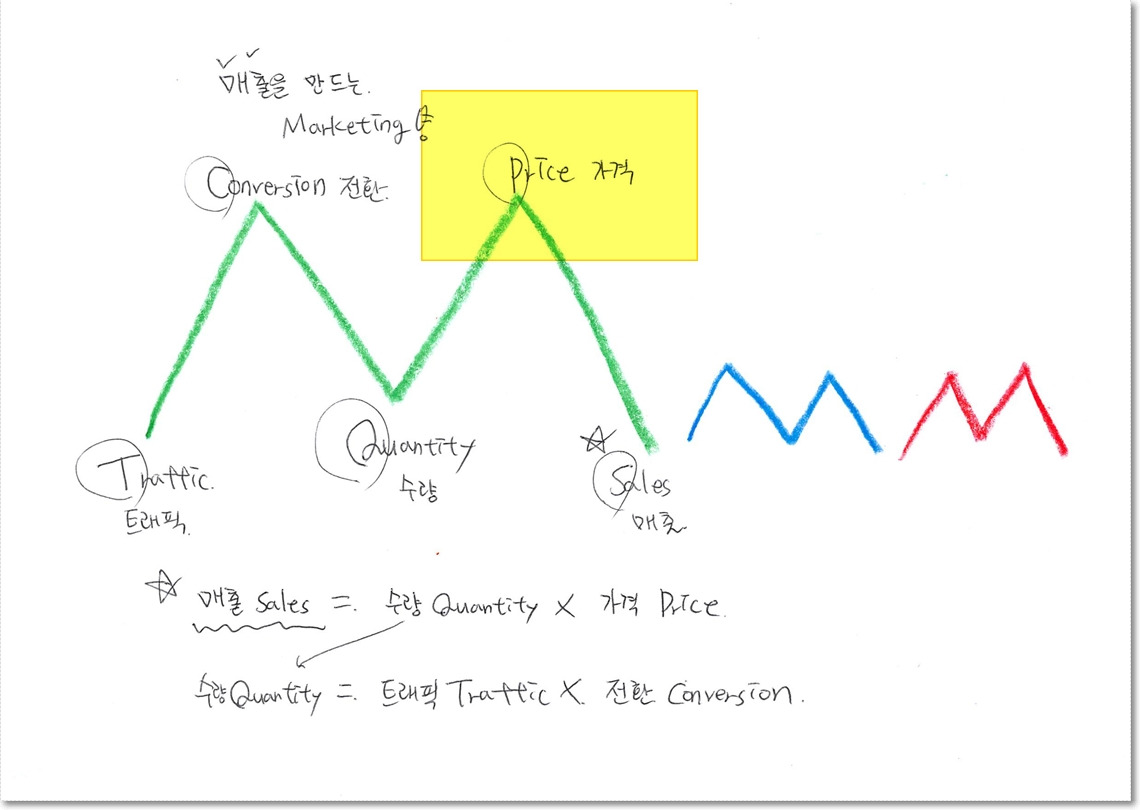 매출을 만드는.
Marketing 용
Conversion 전환.
Price 가격
Traffic.
트래픽.
Quantity
수량
Sales
매출.
매출 Sales = 수량 Quantity X 가격 Price.
수량 Quantity = 트래픽 Traffic X 전환 Conversion.